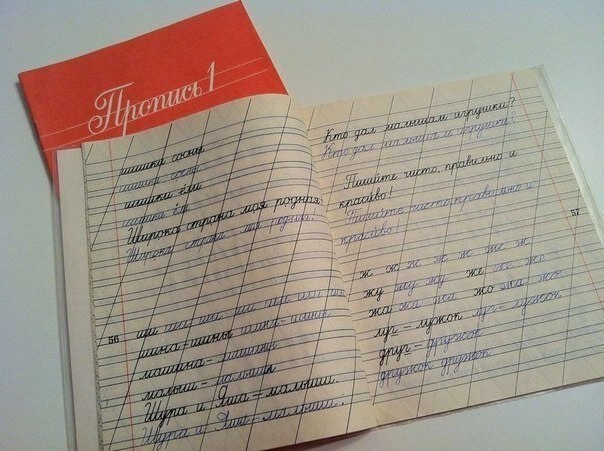 Пропись 1
шишки сосны
шишки сосны
шишки ели
шишки ели
Широка страна моя родная.
Широка страна моя родная.
56
ши ша ши ши ша ши ши
шина - шины шина - шины
машина - машины
малыш - малыши
Шура и Яша - малыши.
Шура и Яша - малыши.
Кто дал малышам игрушки?
Кто дал малышам игрушки?
Пишите чисто, правильно и
красиво!
Пишите чисто, правильно и
красиво!
57
ж ж ж ж ж ж ж
жу жу жу же же же
жа жа жа жо жа жо
луг - лужок луг - лужок
друг - дружок
дружок дружок